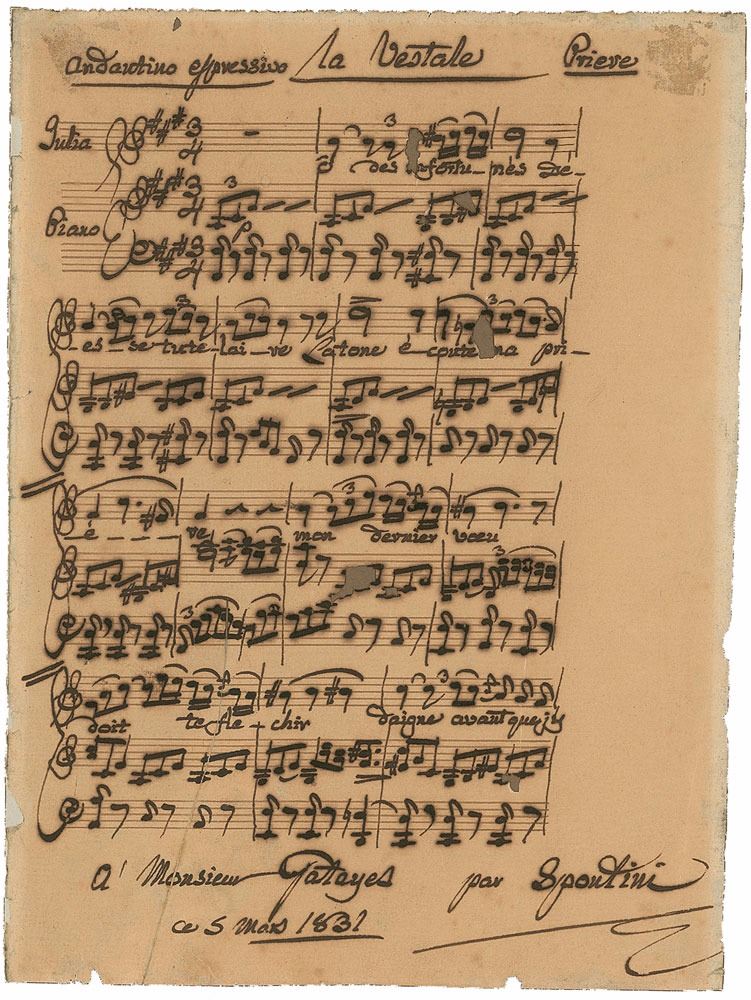 Andantino espressivo la Vestale Priere
Julia
3
ô des infortu_nés Dé_
Piano
3
p
3
es_se tute_lai_re Latone é_coute ma pri_
3
_è_ _ _ _ re mon dernier vœu
3
3
3
doit te fle_chir Daigne avant que je
A' Monsieur Gatayes par Spontini
ce 5 Mars 1832